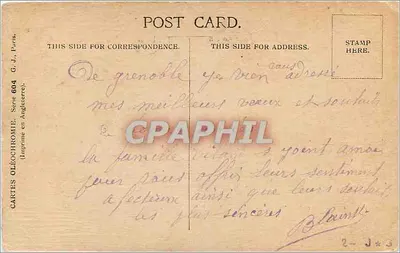 POST CARD.
THIS SIDE FOR CORRESPONDENCE.
THIS SIDE FOR ADDRESS.
STAMP
HERE.
CARTES OLÉOCHROMIE, Série 604 G. J., Paris.
(Imprimé en Angleterre).
De grenoble je vien vous adressé
mes meilleurs vœux et souhaits
CPAPHIL
la famille s joint a moi
pour vous offrir leurs sentiments
ainsi que leurs souhaits
les plus sincères